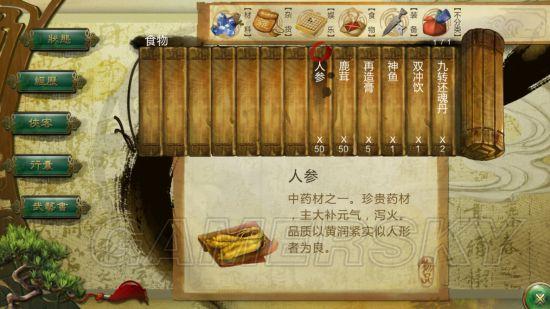 材料
杂货
娱乐
食物
装备
不分类
狀態
經歷
俠客
行囊
武藝會
食物
1/1
人参
X50
鹿茸
X50
再造膏
X5
神鱼
X1
双冲饮
X1
九转还魂丹
X2
人参
中药材之一。珍贵药材
，主大补元气，泻火。
品质以黄润紧实似人形
者为良。
物品
GAMERSKY